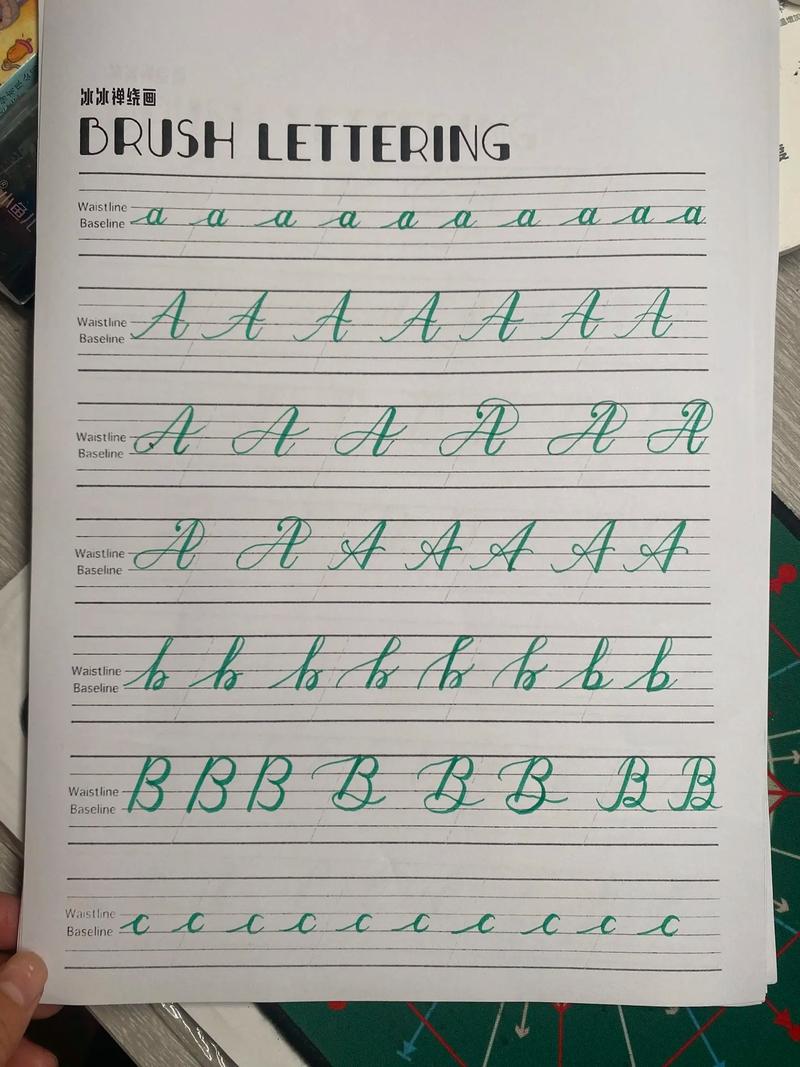 冰冰禅绕画
BRUSH LETTERING
Waistline
Baseline a a a a a a a a a a
Waistline
Baseline A A A A A A A
Waistline
Baseline A A A A A A
Waistline
Baseline A A A A A A A
Waistline
Baseline b b b b b b b b
Waistline
Baseline B B B B B B B B
Waistline
Baseline c c c c c c c c c c
小鱼儿